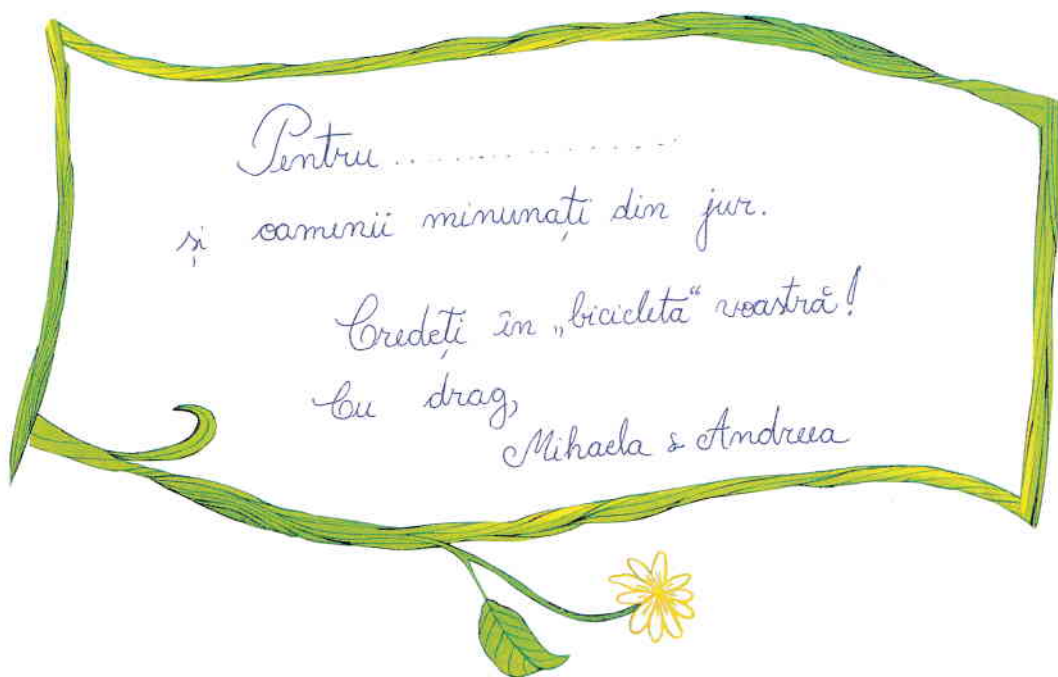 Pentru ..................
și oamenii minunați din jur.
Credeți în „bicicleta“ voastră!
Cu drag,
Mihaela & Andreea